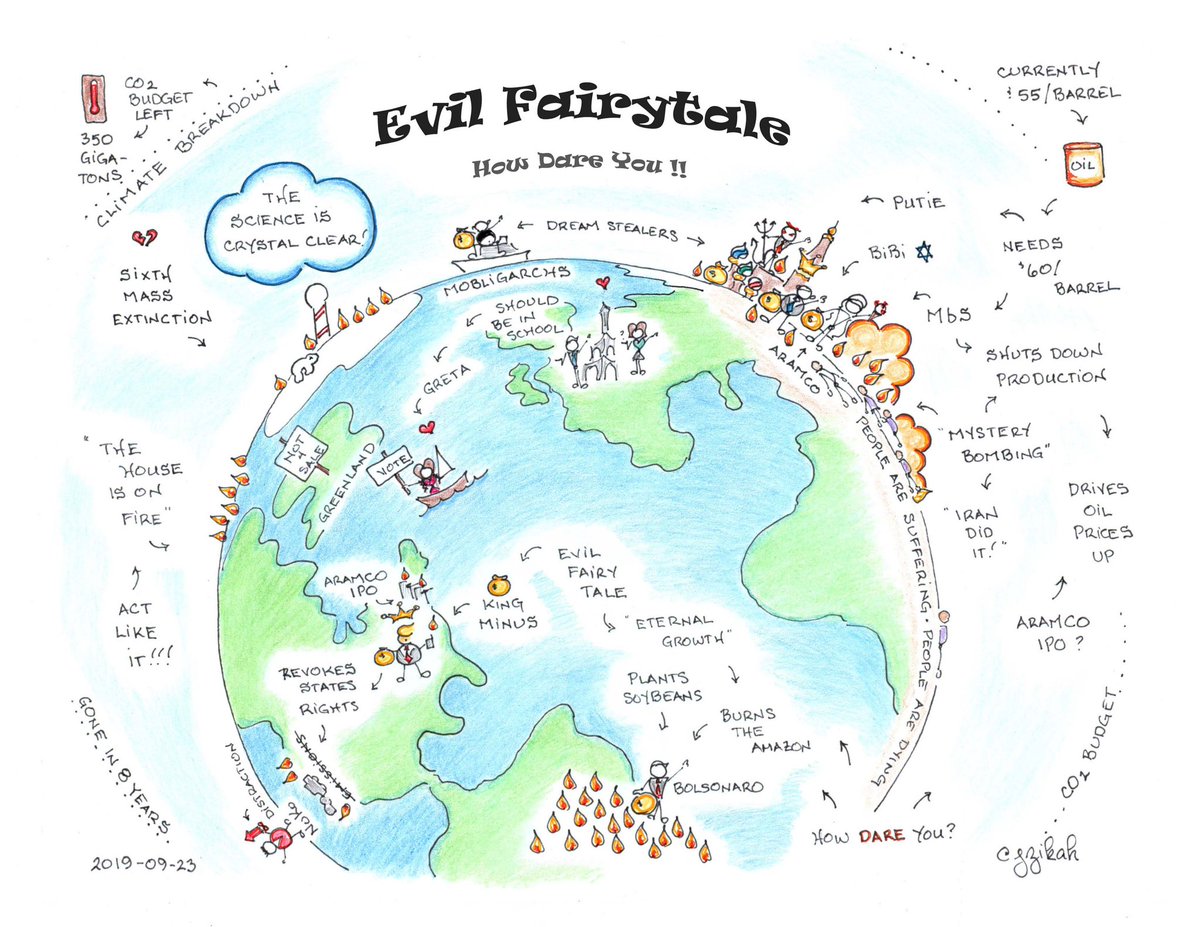 Evil Fairytale
How Dare You !!
CO2
BUDGET
LEFT
350
GIGA-
TONS
CLIMATE BREAKDOWN
THE
SCIENCE IS
CRYSTAL CLEAR!
SIXTH
MASS
EXTINCTION
"THE
HOUSE
IS ON
FIRE"
ACT
LIKE
IT!!!
GONE IN 8 YEARS
2019-09-23
DREAM STEALERS
MOBLIGARCHS
SHOULD
BE IN
SCHOOL!
GRETA
NOT
4
SALE
GREENLAND
VOTE
ARAMCO
IPO
KING
MINUS
EVIL
FAIRY
TALE
"ETERNAL
GROWTH"
PLANTS
SOYBEANS
BURNS
THE
AMAZON
BOLSONARO
REVOKES
STATES
RIGHTS
EMISSIONS
DISTRACTION
NOKO
CURRENTLY
$55/BARREL
OIL
PUTIE
BIBI
NEEDS
$60/
BARREL
MbS
SHUTS DOWN
PRODUCTION
ARAMCO
"MYSTERY
BOMBING"
"IRAN
DID
IT!"
DRIVES
OIL
PRICES
UP
ARAMCO
IPO?
PEOPLE ARE SUFFERING • PEOPLE ARE DYING
HOW DARE YOU?
CO2 BUDGET
cjzikah